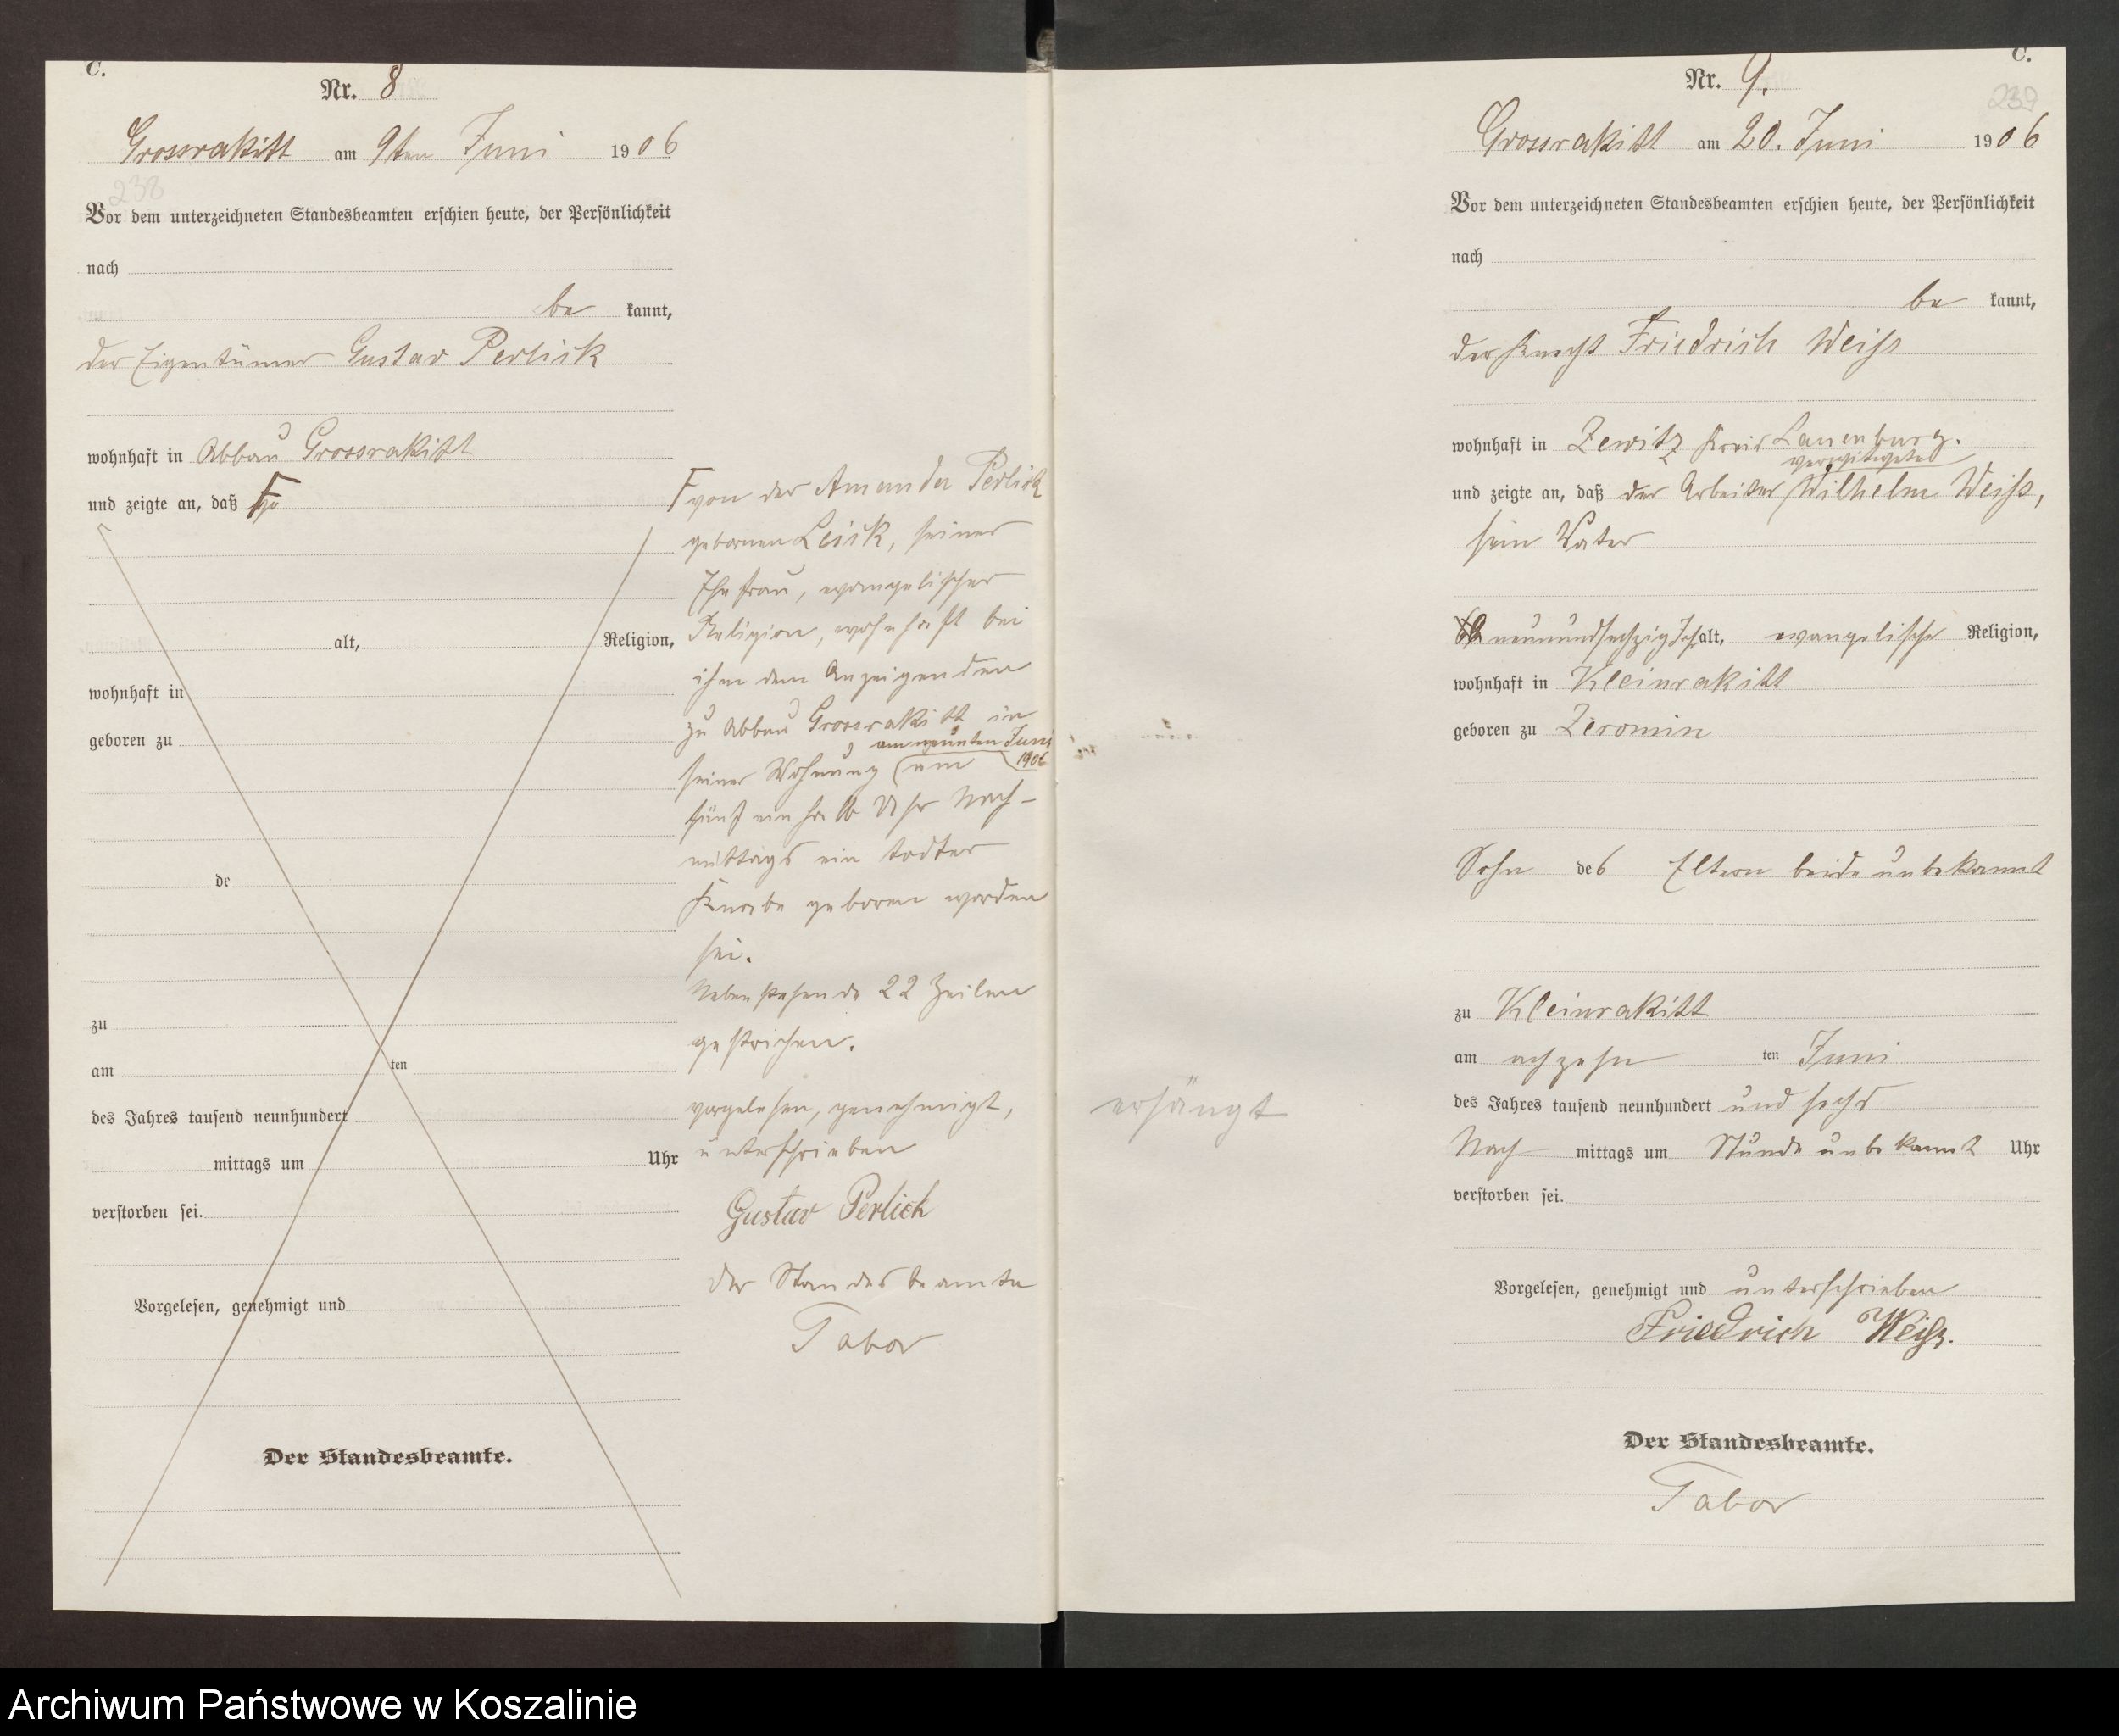 C.
Nr. 8
Grossrakitt am 9ten Juni 1906
238
Vor dem unterzeichneten Standesbeamten erschien heute, der Persönlichkeit
nach
be kannt,
der Eigentümer Gustav Perlick
wohnhaft in Abbau Grossrakitt
und zeigte an, daß
alt, Religion,
wohnhaft in
geboren zu
de
zu
am ten
des Jahres tausend neunhundert
mittags um Uhr
verstorben sei.
Vorgelesen, genehmigt und
Der Standesbeamte.
von der Amanda Perlick
gebornen Leick, seiner
Ehefrau, evangelischer
Religion, wohnhaft bei
ihm dem Anzeigenden
zu Abbau Grossrakitt in
am neunten Juni
1906
seiner Wohnung um
fünf ein halb Uhr Nach-
mittags ein todter
Knabe geboren worden
sei.
Nebenstehende 22 Zeilen
gestrichen.
vorgelesen, genehmigt,
unterschrieben
Gustav Perlick
Der Standesbeamte
Tabor
erhängt
C.
Nr. 9.
239
Grossrakitt am 20. Juni 1906
Vor dem unterzeichneten Standesbeamten erschien heute, der Persönlichkeit
nach
be kannt,
der Knecht Friedrich Weiß
wohnhaft in Zewitz Kreis Lauenburg.
verwitwete
und zeigte an, daß der Arbeiter Wilhelm Weiß,
sein Vater
neunundsechzig alt, evangelischer Religion,
wohnhaft in Kleinrakitt
geboren zu Zeromin
Sohn des Eltern beide unbekannt
zu Kleinrakitt
am achzehn ten Juni
des Jahres tausend neunhundert und sechs
Nach mittags um Stunde unbekannt Uhr
verstorben sei.
Vorgelesen, genehmigt und unterschrieben
Friedrich Weiß.
Der Standesbeamte.
Tabor
Archiwum Państwowe w Koszalinie